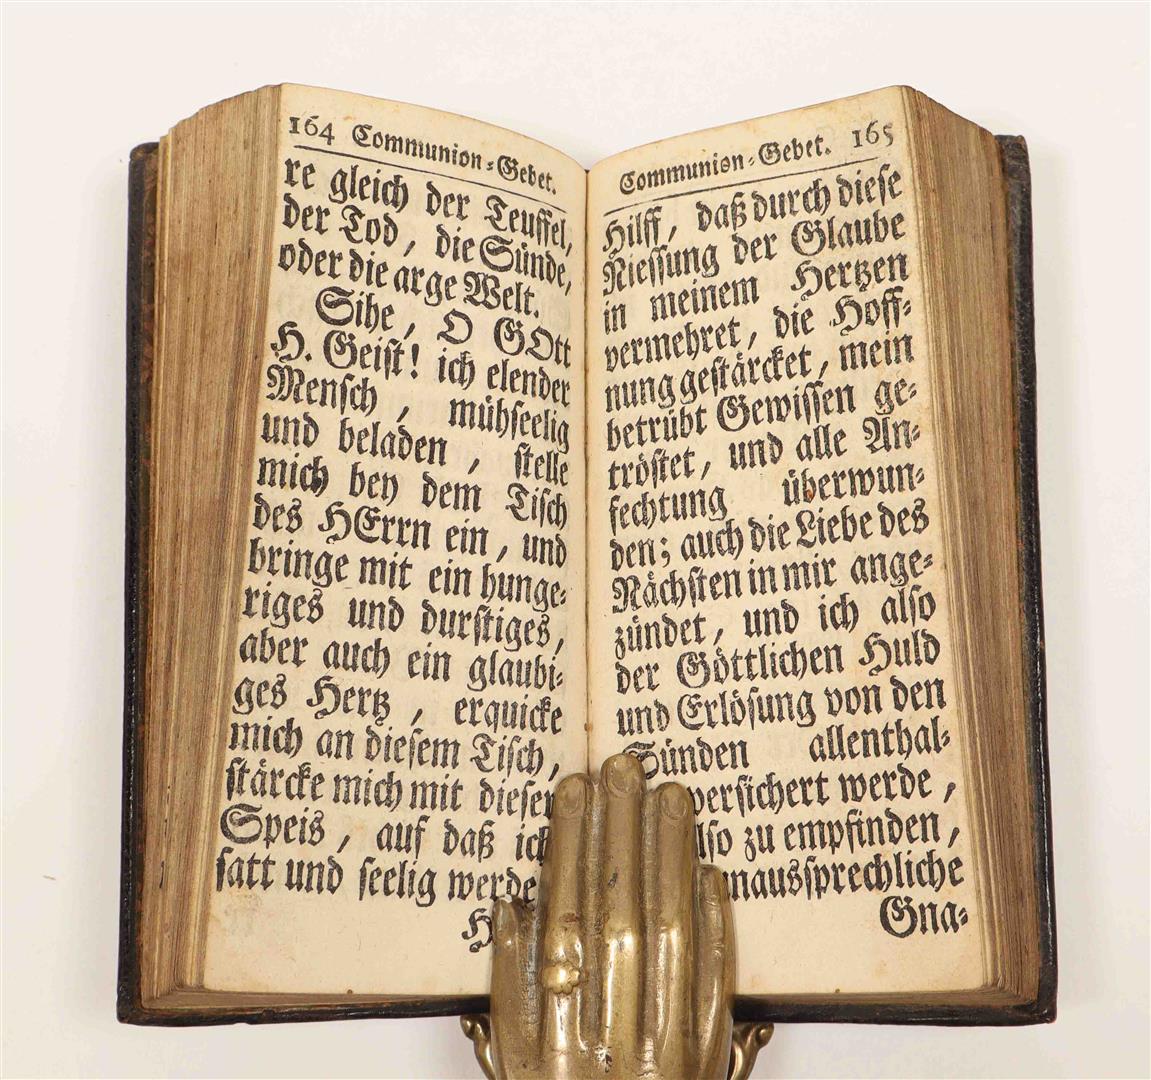 164 Communion-Gebet.
re gleich der Teuffel,
der Tod, die Sünde,
oder die arge Welt.
Sihe, O GOtt
H. Geist! ich elender
Mensch, mühseelig
und beladen, stelle
mich bey dem Tisch
des HErrn ein, und
bringe mit ein hunge-
riges und durstiges,
aber auch ein glaubi-
ges Hertz, erquicke
mich an diesem Tisch,
stärcke mich mit dieser
Speis, auf daß ich
satt und seelig werde
Communion-Gebet. 165
Hilff, daß durch diese
Niessung der Glaube
in meinem Hertzen
vermehret, die Hoff-
nung gestärcket, mein
betrübt Gewissen ge-
tröstet, und alle An-
fechtung überwun-
den; auch die Liebe des
Nächsten in mir ange-
zündet, und ich also
der Göttlichen Huld
und Erlösung von den
Sünden allenthal-
versichert werde,
zu empfinden,
Gna-